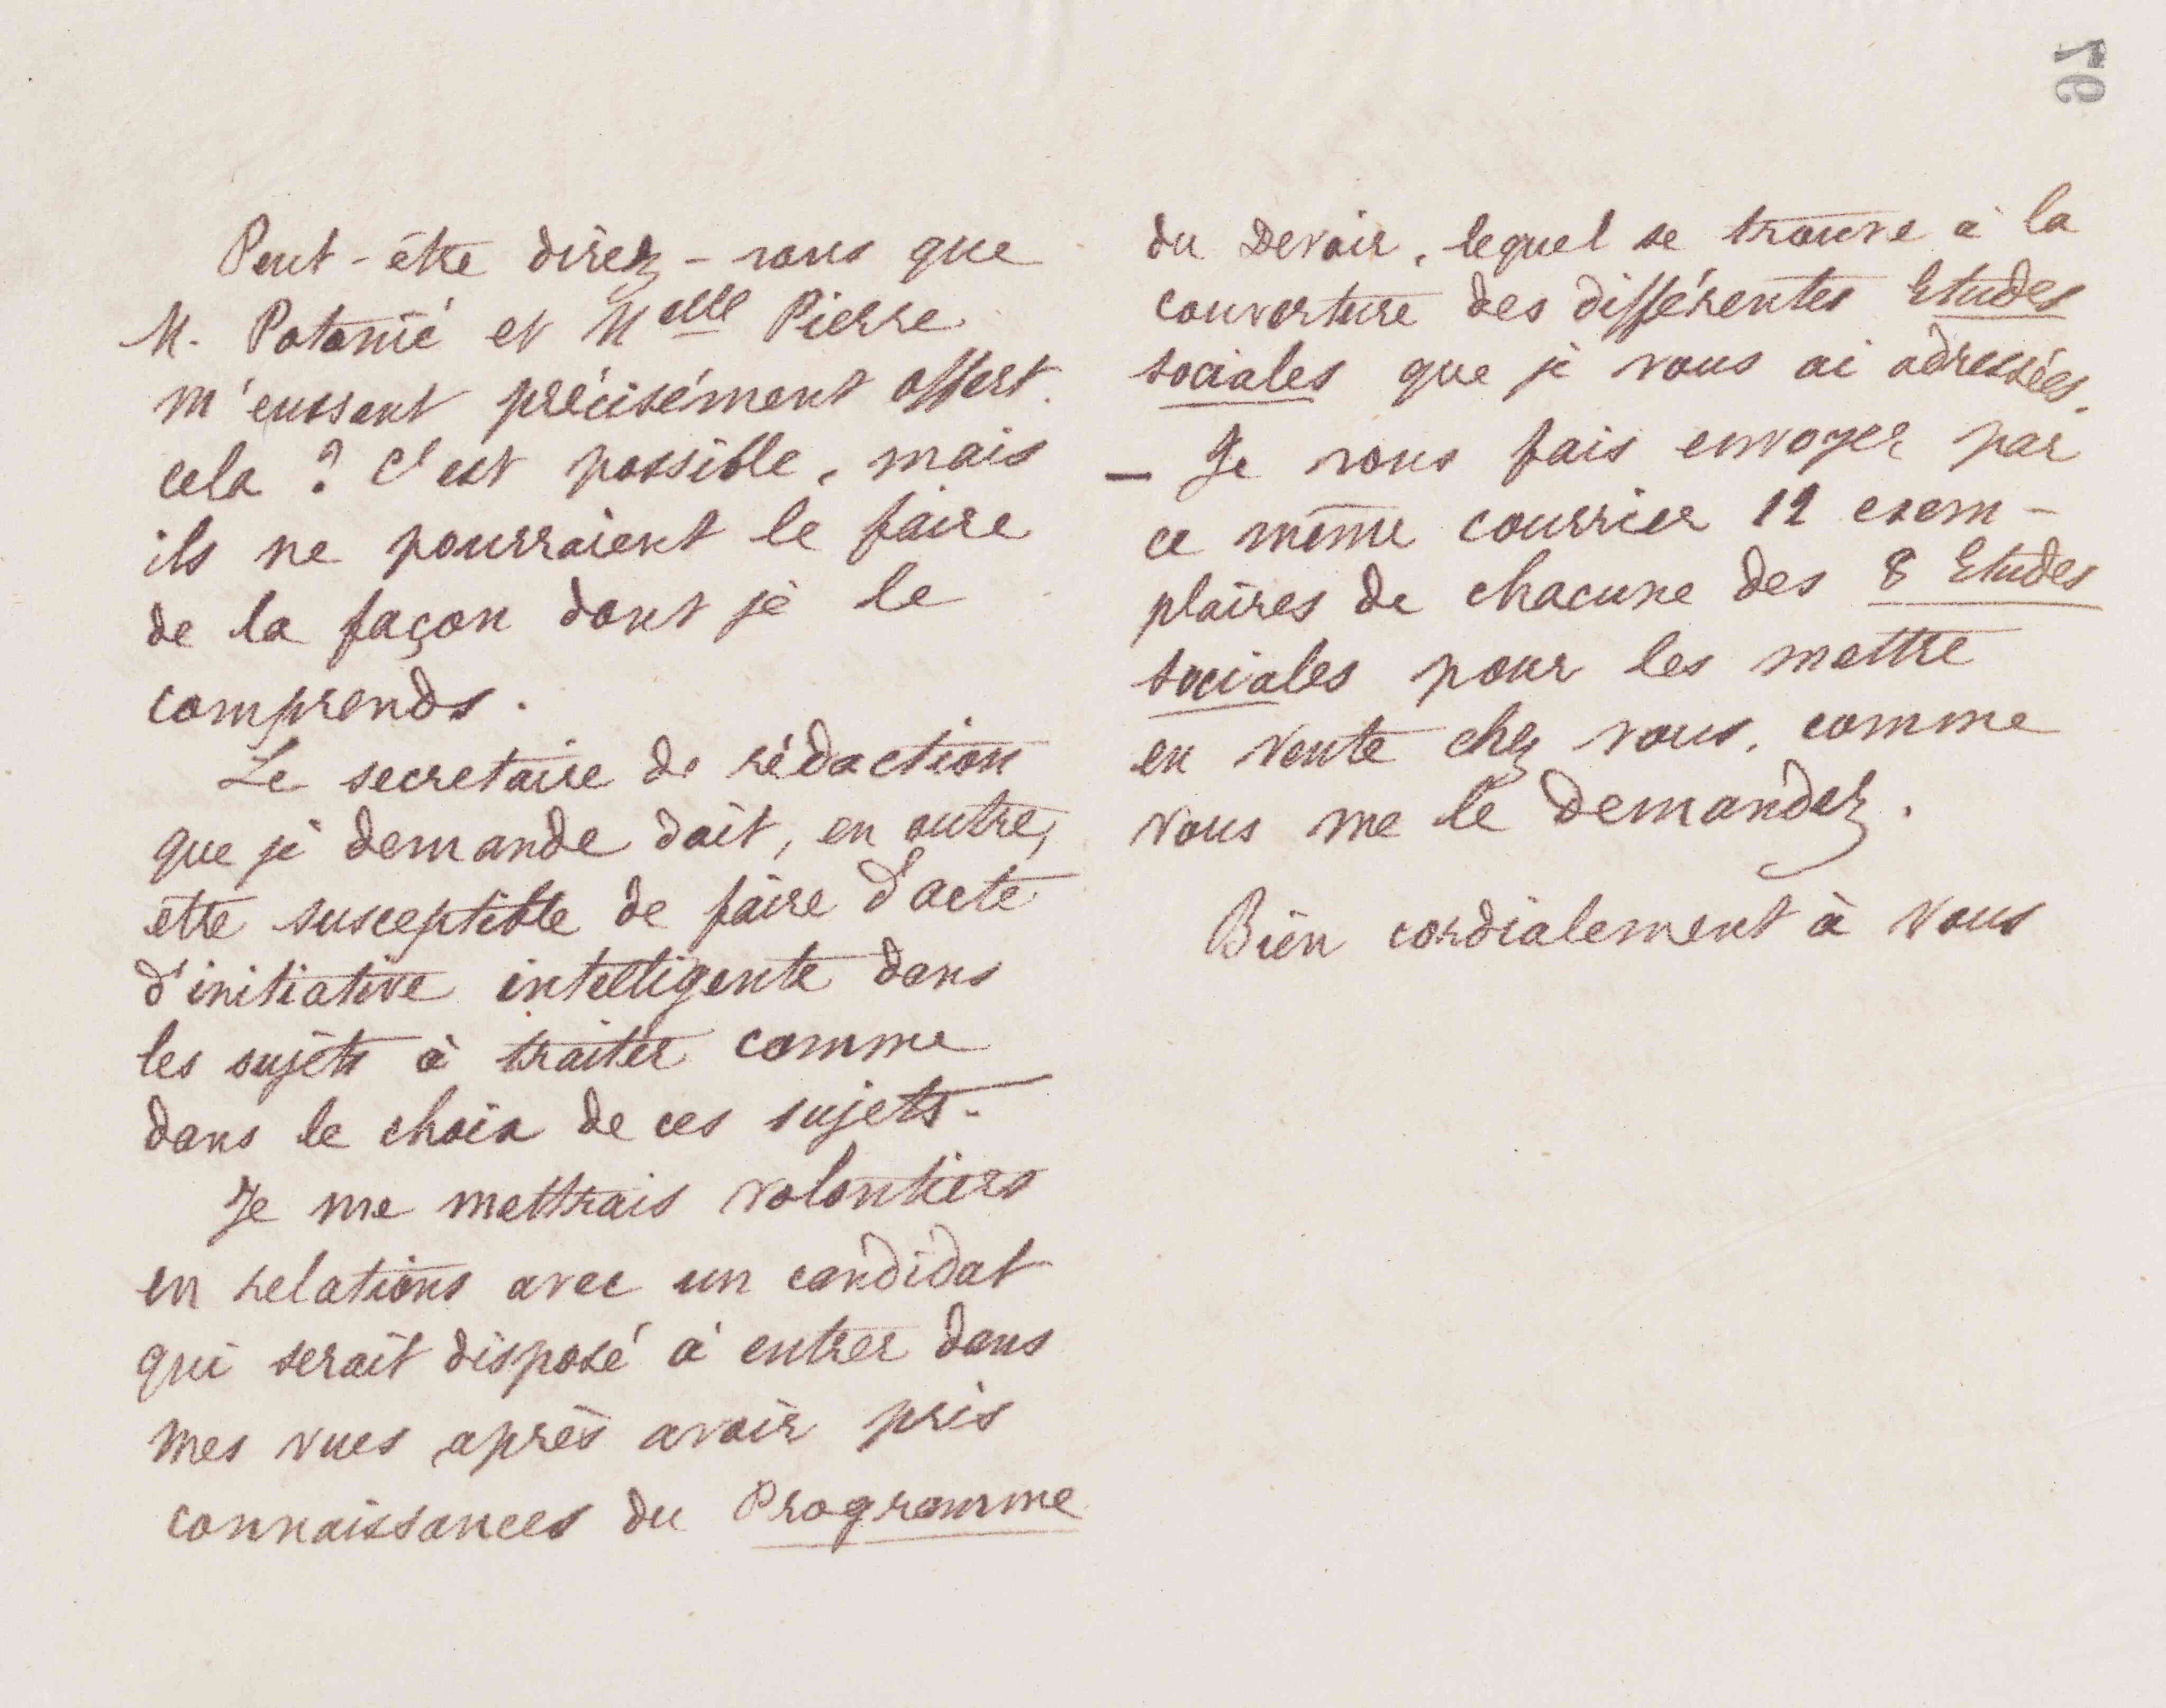 76
Peut-être direz-vous que
M. Potonié et Melle Pierre
m'eussent précisément offert
cela ? C'est possible, mais
ils ne pourraient le faire
de la façon dont je le
comprends.
Le secretaire de rédaction
que je demande doit, en outre,
être susceptible de faire d'acte
d'initiative intelligente dans
les sujets à traiter comme
dans le choix de ces sujets.
Je me mettrais volontiers
en relations avec un candidat
qui serait disposé à entrer dans
mes vues après avoir pris
connaissances du Programme
du Devoir, lequel se trouve à la
couverture des différentes Etudes
sociales que je vous ai adressées.
— Je vous fais envoyer par
ce même courrier 12 exem-
plaires de chacune des 8 Etudes
sociales pour les mettre
en vente chez vous, comme
vous me le demandez.
Bien cordialement à vous